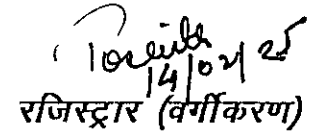 14/02/25
रजिस्ट्रार (वर्गीकरण)